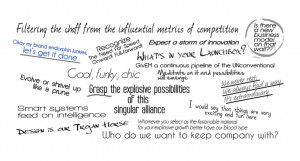 Filtering the chaff from the influential metrics of competition
Is there
a new
business
model
on that
wall?
Okay my brand endorphin junkies,
let's get it done
Recognize
the Need for speed
Onward fullforward
Expect a storm of innovation
What's in your Launchbox?
Given a continual pipeline of the UNconventional
Meditate on it and possibilities
will emerge
Cool, funky, chic
Evolve or shrivel up
like a prune
Grasp the explosive possibilities
of this
singular alliance
We never rest
We always find a way
It's extraordinary
Smart systems
feed on intelligence
I would say that things are very
exciting and fun here
Whomever you select as the favorable motored
for your explosive growth better have our blood type
Design is our Trojan Horse
Who do we want to keep company with?